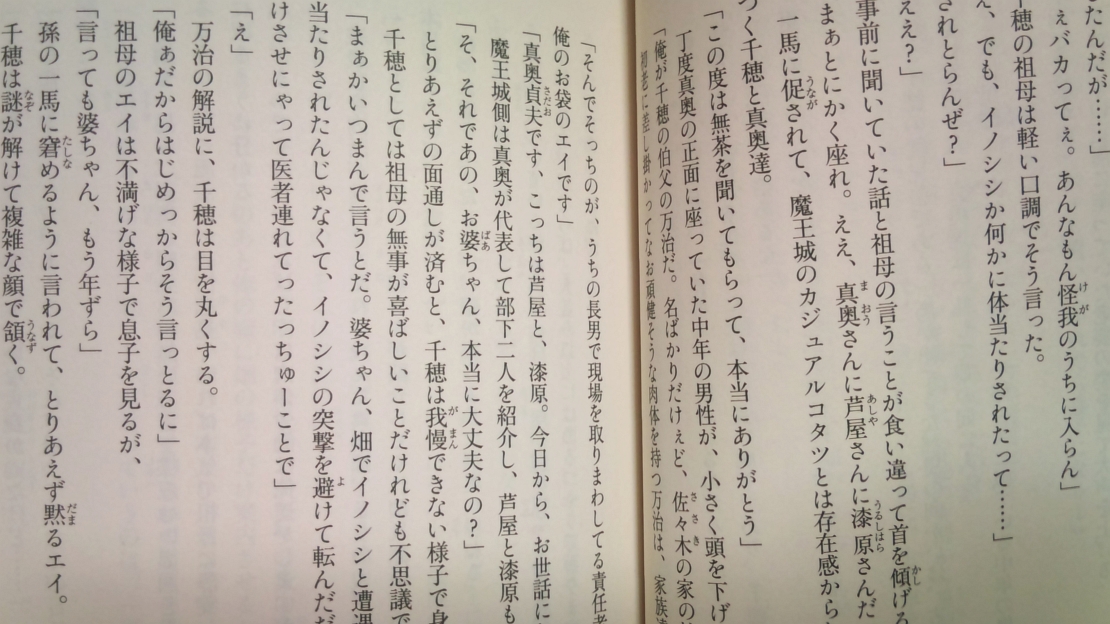 たんだが……」
ぇバカってぇ。あんなもん怪我のうちに入らん」
千穂の祖母は軽い口調でそう言った。
え、でも、イノシシか何かに体当たりされたって……」
されとらんぜ？」
ええ？」
事前に聞いていた話と祖母の言うことが食い違って首を傾げる
まぁとにかく座れ。ええ、真奥さんに芦屋さんに漆原さんだ
一馬に促されて、魔王城のカジュアルコタツとは存在感から
つく千穂と真奥達。
「この度は無茶を聞いてもらって、本当にありがとう」
丁度真奥の正面に座っていた中年の男性が、小さく頭を下げ
「俺が千穂の伯父の万治だ。名ばかりだけぇど、佐々木の家の
初老に差し掛かってなお頑健そうな肉体を持つ万治は、家族
「そんでそっちのが、うちの長男で現場を取りまわしてる責任者
俺のお袋のエイです」
「真奥貞夫です、こっちは芦屋と、漆原。今日から、お世話に
魔王城側は真奥が代表して部下二人を紹介し、芦屋と漆原も
「そ、それであの、お婆ちゃん、本当に大丈夫なの？」
とりあえずの面通しが済むと、千穂は我慢できない様子で身
千穂としては祖母の無事が喜ばしいことだけれども不思議で
「まぁかいつまんで言うとだ。婆ちゃん、畑でイノシシと遭遇
当たりされたんじゃなくて、イノシシの突撃を避けて転んだだ
けさせにゃって医者連れてったっちゅーことで」
「え」
万治の解説に、千穂は目を丸くする。
「俺ぁだからはじめっからそう言っとるに」
祖母のエイは不満げな様子で息子を見るが、
「言っても婆ちゃん、もう年ずら」
孫の一馬に窘めるように言われて、とりあえず黙るエイ。
千穂は謎が解けて複雑な顔で頷く。